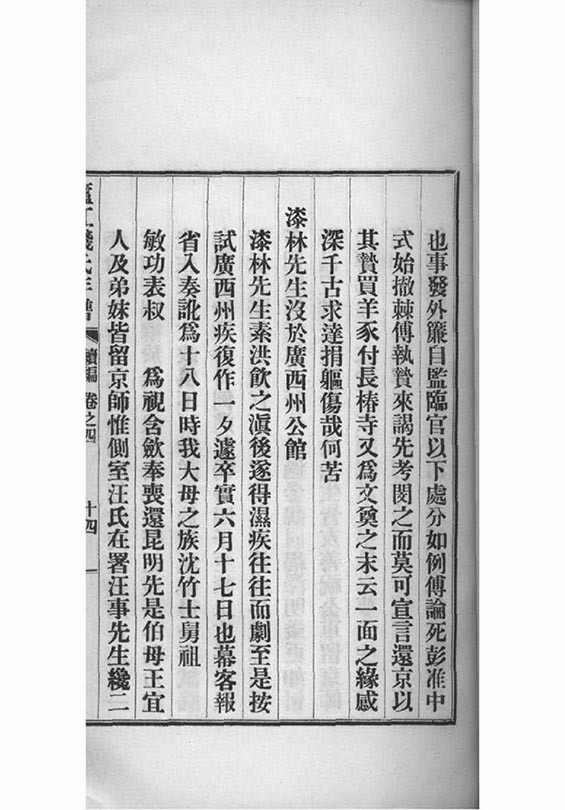 也事發外簾自監臨官以下處分如例傅論死彭准中
式始撤棘傅執贄來謁先考閔之而莫可宣言還京以
其贄買羊豕付長椿寺又爲文奠之末云一面之緣感
深千古求達捐軀傷哉何苦
漆林先生沒於廣西州公館
漆林先生素洪飮之滇後遂得濕疾往往而劇至是按
試廣西州疾復作一夕遽卒實六月十七日也幕客報
省入奏訛爲十八日時我大母之族沈竹士舅祖
敏功表叔 爲視含斂奉喪還昆明先是伯母王宜
人及弟妹皆留京師惟側室汪氏在署汪事先生纔二
錢氏年譜 續編 卷之四 十四